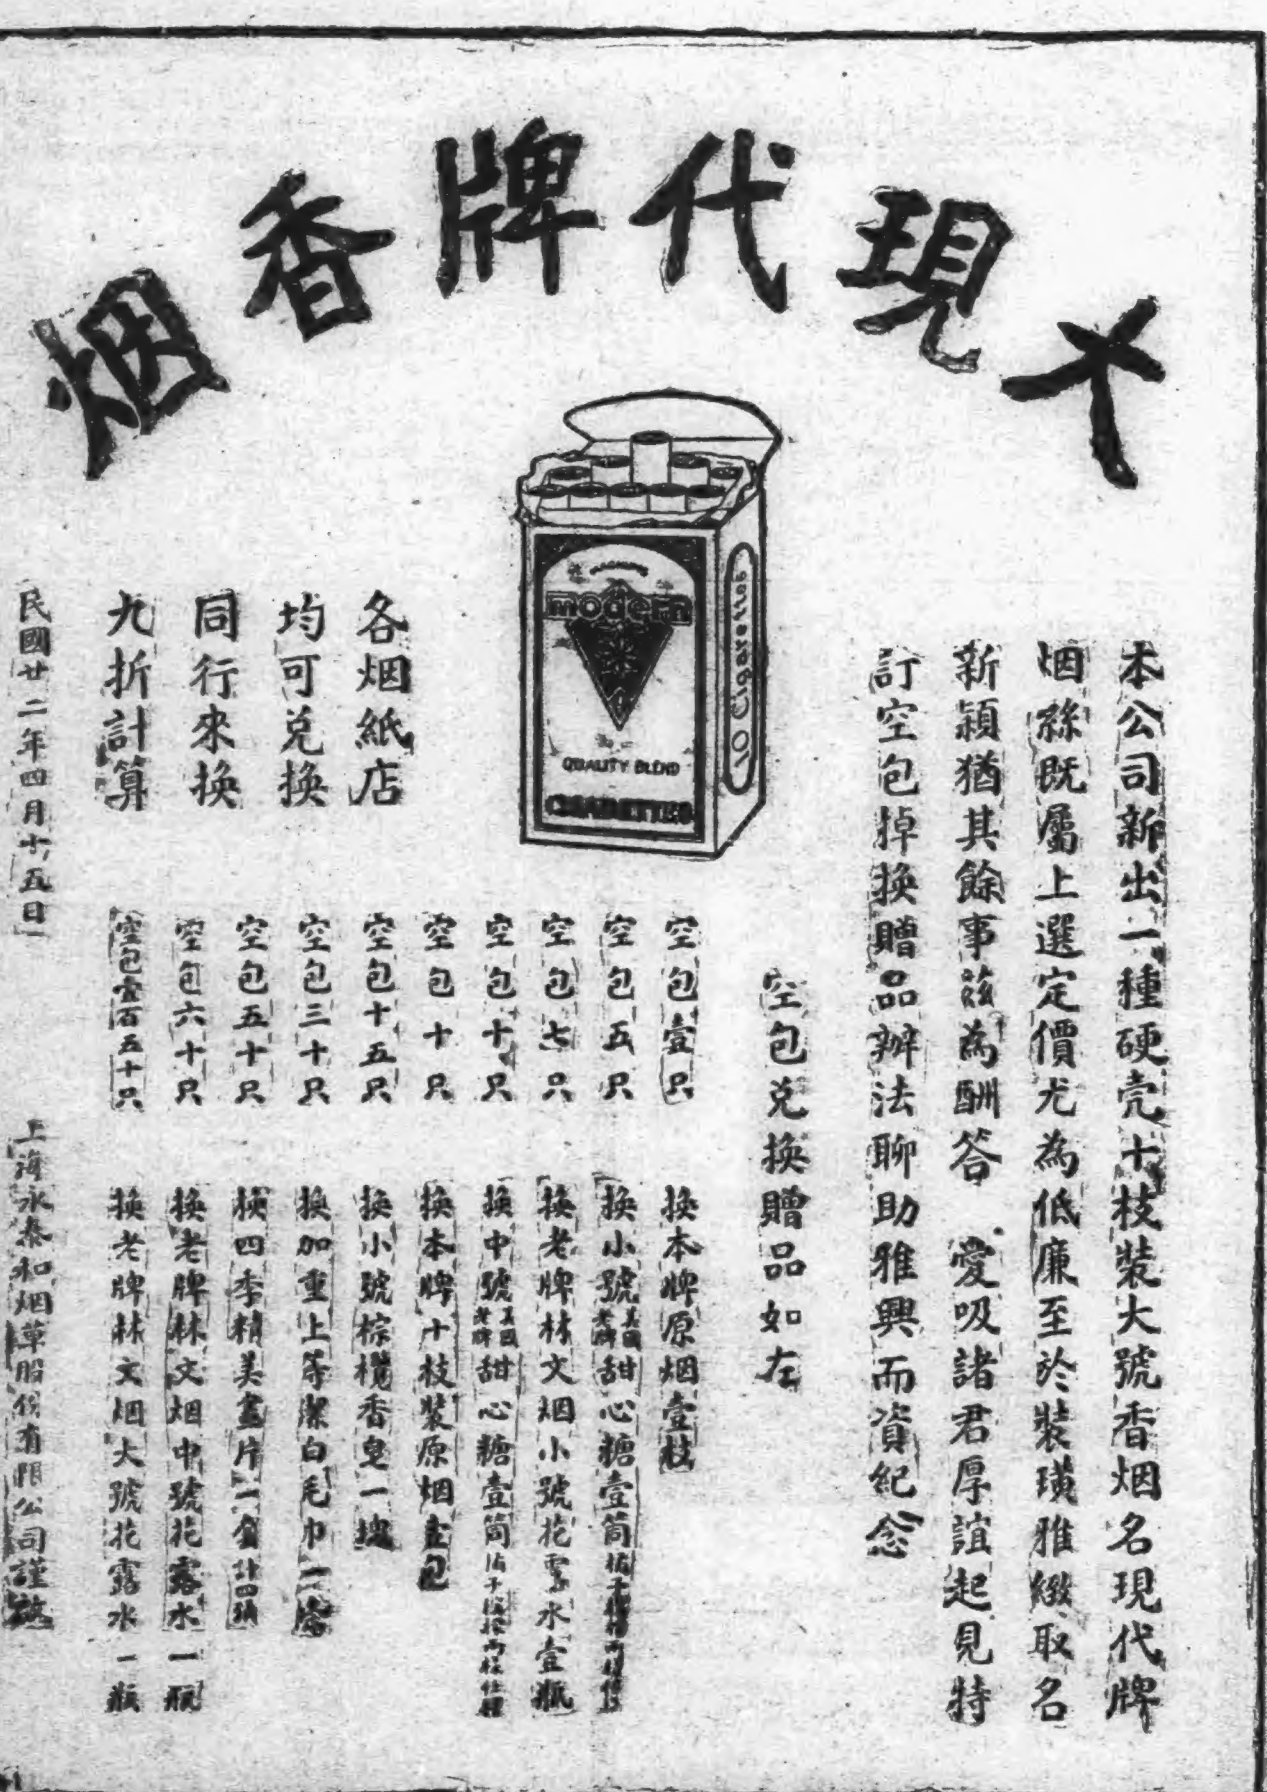 大現代牌香烟
modern
QUALITY BLEND
CIGARETTES
10 Cigarettes
本公司新出一種硬壳十枝裝大號香烟名現代牌
烟絲既屬上選定價尤為低廉至於裝璜雅緻取名
新穎猶其餘事茲為酬答 愛吸諸君厚誼起見特
訂空包掉換贈品辦法聊助雅興而資紀念
空包兑換贈品如左
空包壹只 換本牌原烟壹枝
空包五只 換小號美國老牌甜心糖壹筒
空包七只 換老牌林文烟小號花露水壹瓶
空包十只 換中號美國老牌甜心糖壹筒
空包十只 換本牌十枝裝原烟壹包
空包十五只 換小號棕欖香皂一塊
空包三十只 換加重上等潔白毛巾一條
空包五十只 換四季精美畫片一套計四張
空包六十只 換老牌林文烟中號花露水一瓶
空包壹百五十只 換老牌林文烟大號花露水一瓶
各烟紙店
均可兑換
同行來換
九折計算
民國廿二年四月十五日
上海永泰和烟草股份有限公司謹啟